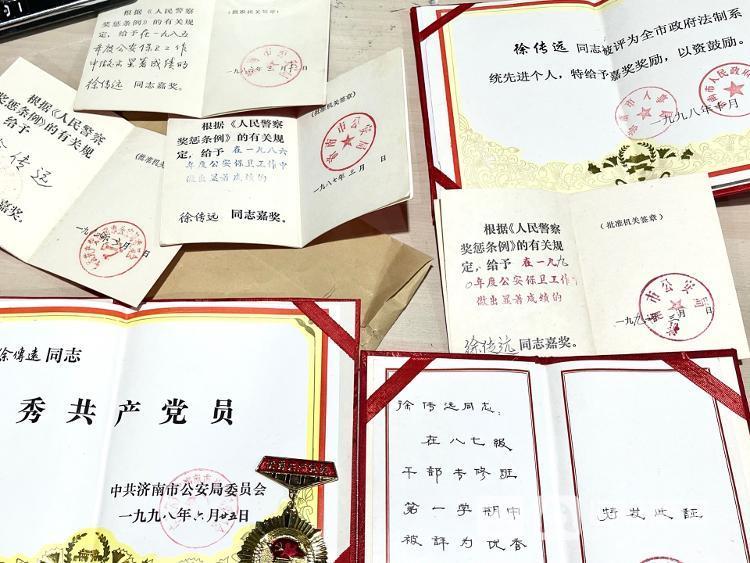 根据《人民警察
奖惩条例》的有关规
定，给予在一九八五
年度公安保卫工作
中做出显著成绩的
徐传远 同志嘉奖。
(批准机关签章)
根据《人民警察
奖惩条例》的有关规
给予
徐传远
(批准机关
根据《人民警察
奖惩条例》的有关规
定，给予在一九八六
年度公安保卫工作中
做出显著成绩的
徐传远 同志嘉奖。
(批准机关签章)
济南市公安局
一九八七年三月 日
徐传远 同志被评为全市政府法制系
统先进个人，特给予嘉奖奖励，以资鼓励。
根据《人民警察
奖惩条例》的有关规
定，给予在一九九
〇年度公安保卫工作中
做出显著成绩的
徐传远同志嘉奖。
(批准机关签章)
徐傳遠 同志
秀共产党员
中共济南市公安局委员会
一九九八年六月廿五日
徐传远同志：
在八七级
干部专修班
第一学期中
被评为优秀
特发此证